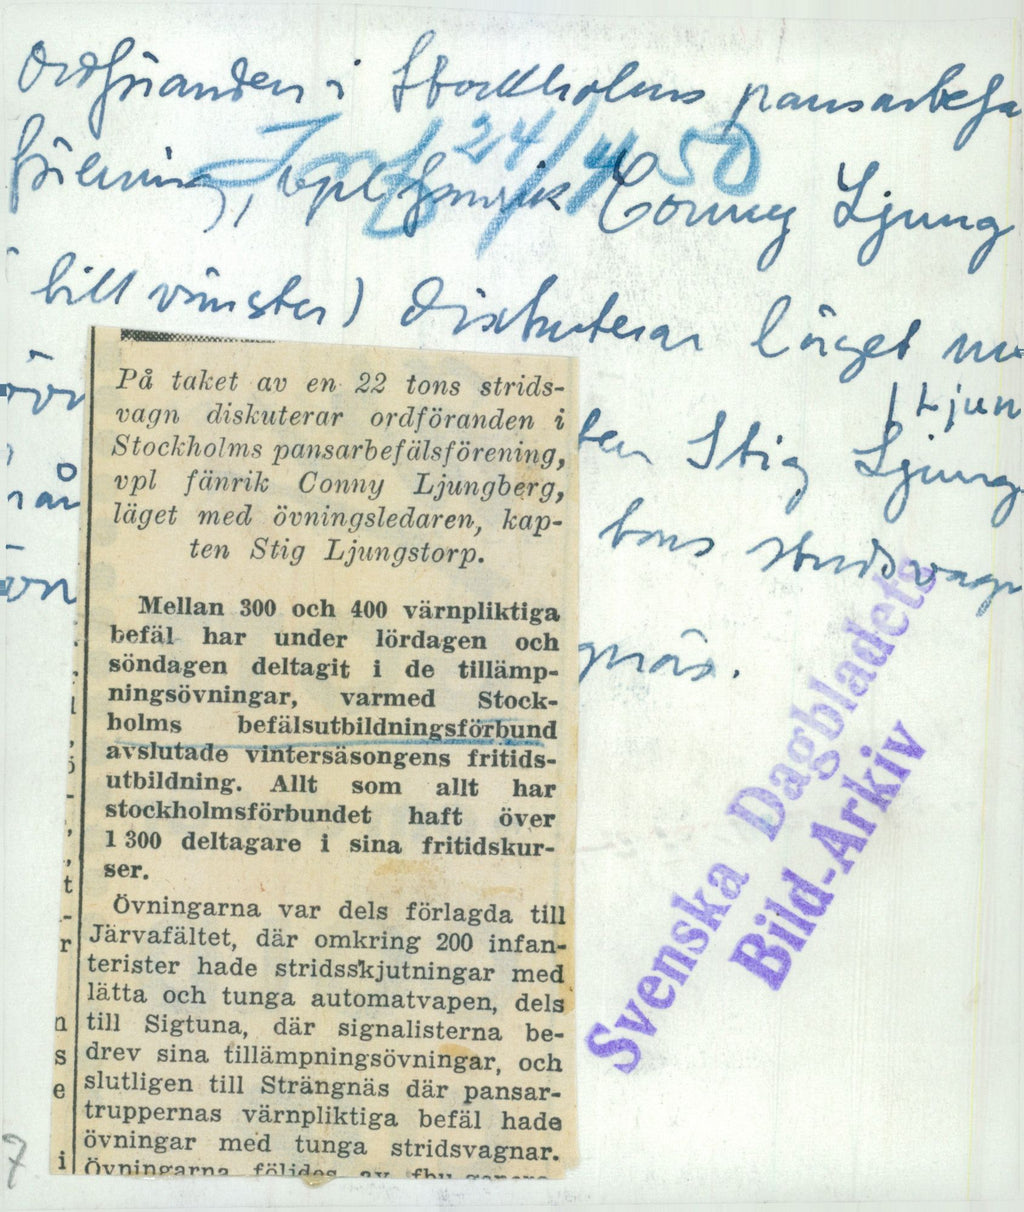 Ordföranden i Stockholms pansarbefä
förening, vpl fänrik Conny Ljung
24/4 50
till vänster) diskuterar läget
övn
Ljun
ten Stig Ljung
från
tons stridsvagn
gnäs.
På taket av en 22 tons strids-
vagn diskuterar ordföranden i
Stockholms pansarbefälsförening,
vpl fänrik Conny Ljungberg,
läget med övningsledaren, kap-
ten Stig Ljungstorp.
Mellan 300 och 400 värnpliktiga
befäl har under lördagen och
söndagen deltagit i de tillämp-
ningsövningar, varmed Stock-
holms befälsutbildningsförbund
avslutade vintersäsongens fritids-
utbildning. Allt som allt har
stockholmsförbundet haft över
1 300 deltagare i sina fritidskur-
ser.
Övningarna var dels förlagda till
Järvafältet, där omkring 200 infan-
terister hade stridsskjutningar med
lätta och tunga automatvapen, dels
till Sigtuna, där signalisterna be-
drev sina tillämpningsövningar, och
slutligen till Strängnäs där pansar-
truppernas värnpliktiga befäl hade
övningar med tunga stridsvagnar.
Övningarna följdes av
Svenska Dagbladets
Bild-Arkiv
7